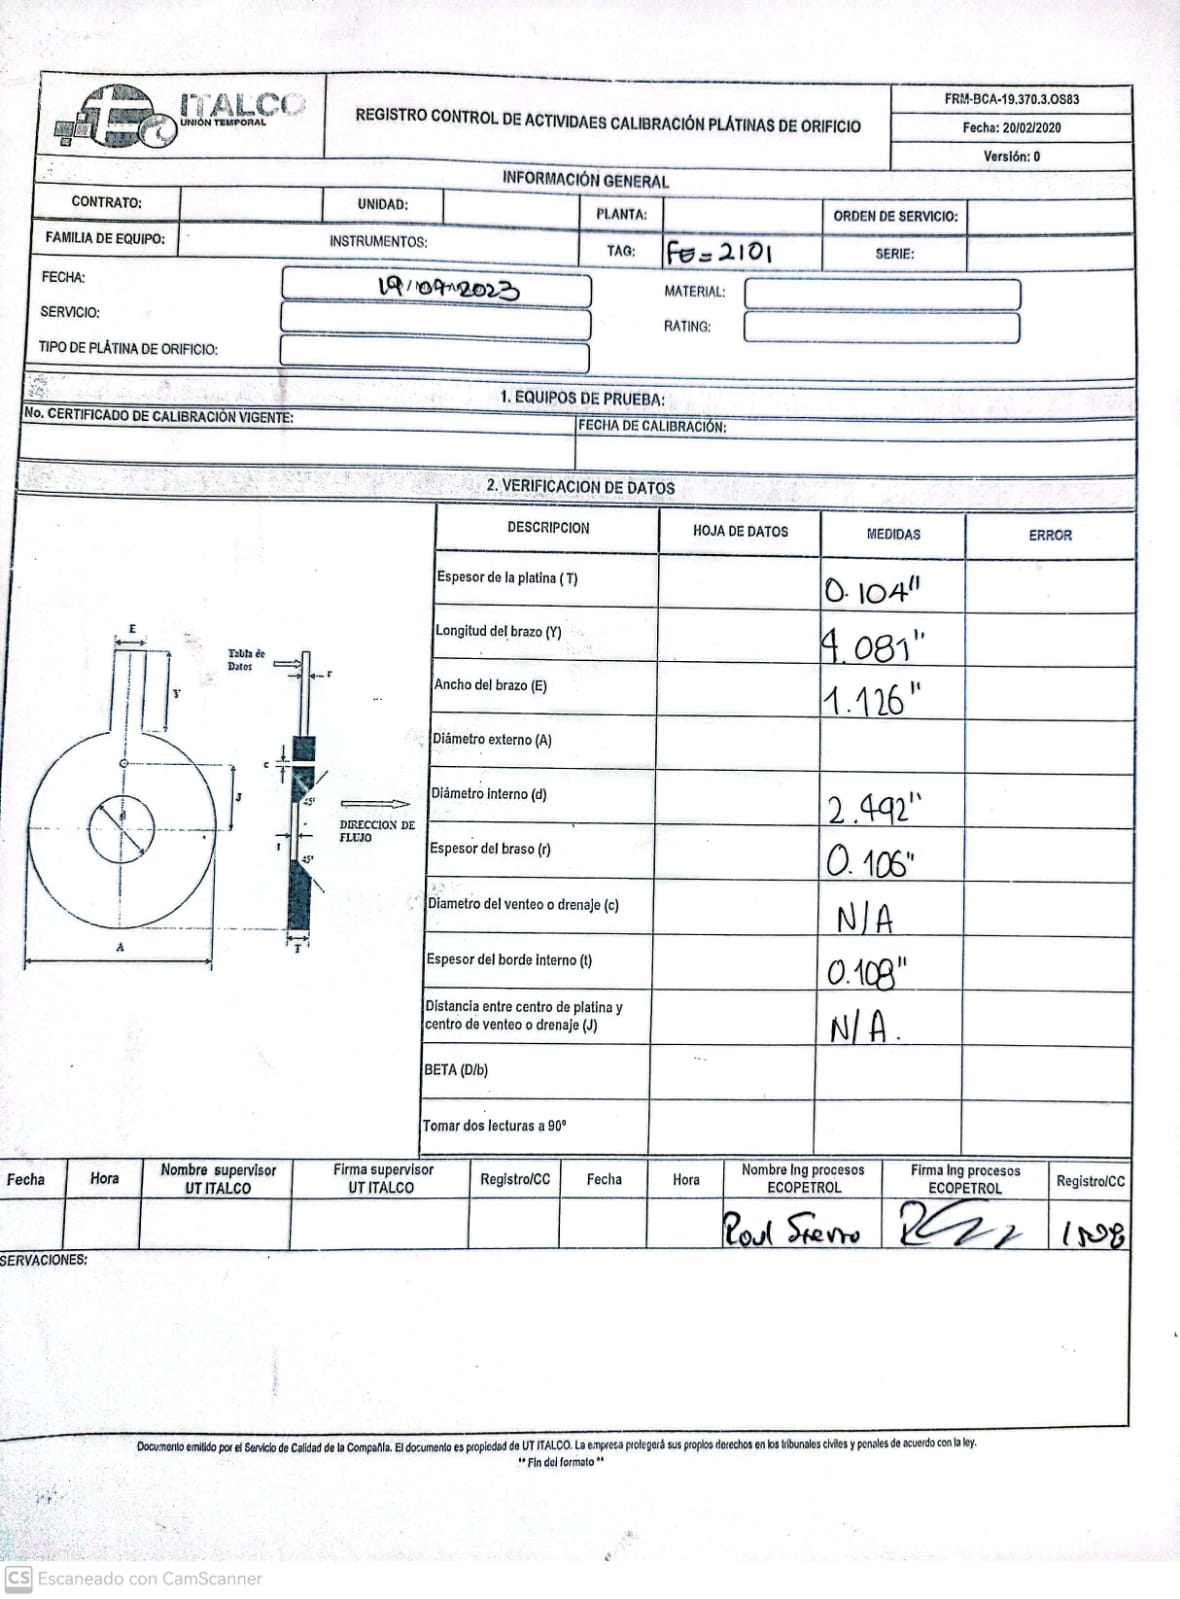 ITALCO
UNIÓN TEMPORAL
REGISTRO CONTROL DE ACTIVIDAES CALIBRACIÓN PLÁTINAS DE ORIFICIO
FRM-BCA-19.370.3.OS83
Fecha: 20/02/2020
Versión: 0
INFORMACIÓN GENERAL
CONTRATO: UNIDAD: PLANTA: ORDEN DE SERVICIO:
FAMILIA DE EQUIPO: INSTRUMENTOS: TAG: FO=2101 SERIE:
FECHA: 19/09/2023 MATERIAL:
SERVICIO: RATING:
TIPO DE PLÁTINA DE ORIFICIO:
1. EQUIPOS DE PRUEBA:
No. CERTIFICADO DE CALIBRACIÓN VIGENTE: FECHA DE CALIBRACIÓN:
2. VERIFICACION DE DATOS
DESCRIPCION HOJA DE DATOS MEDIDAS ERROR
Espesor de la platina (T) 0.104"
Longitud del brazo (Y) 4.081"
Ancho del brazo (E) 1.126"
Diámetro externo (A)
Diámetro interno (d) 2.492"
Espesor del braso (r) 0.106"
Diametro del venteo o drenaje (c) N/A
Espesor del borde interno (t) 0.108"
Distancia entre centro de platina y
centro de venteo o drenaje (J) N/A.
BETA (D/b)
Tomar dos lecturas a 90º
E
Tabla de
Datos
r
Y
c
J
45º
d
DIRECCION DE
FLUJO
t
45º
A
T
Fecha Hora Nombre supervisor
UT ITALCO Firma supervisor
UT ITALCO Registro/CC Fecha Hora Nombre Ing procesos
ECOPETROL Firma Ing procesos
ECOPETROL Registro/CC
Raul Sierra
SERVACIONES:
Documento emitido por el Servicio de Calidad de la Compañía. El documento es propiedad de UT ITALCO. La empresa protegerá sus propios derechos en los tribunales civiles y penales de acuerdo con la ley.
** Fin del formato **
CS Escaneado con CamScanner